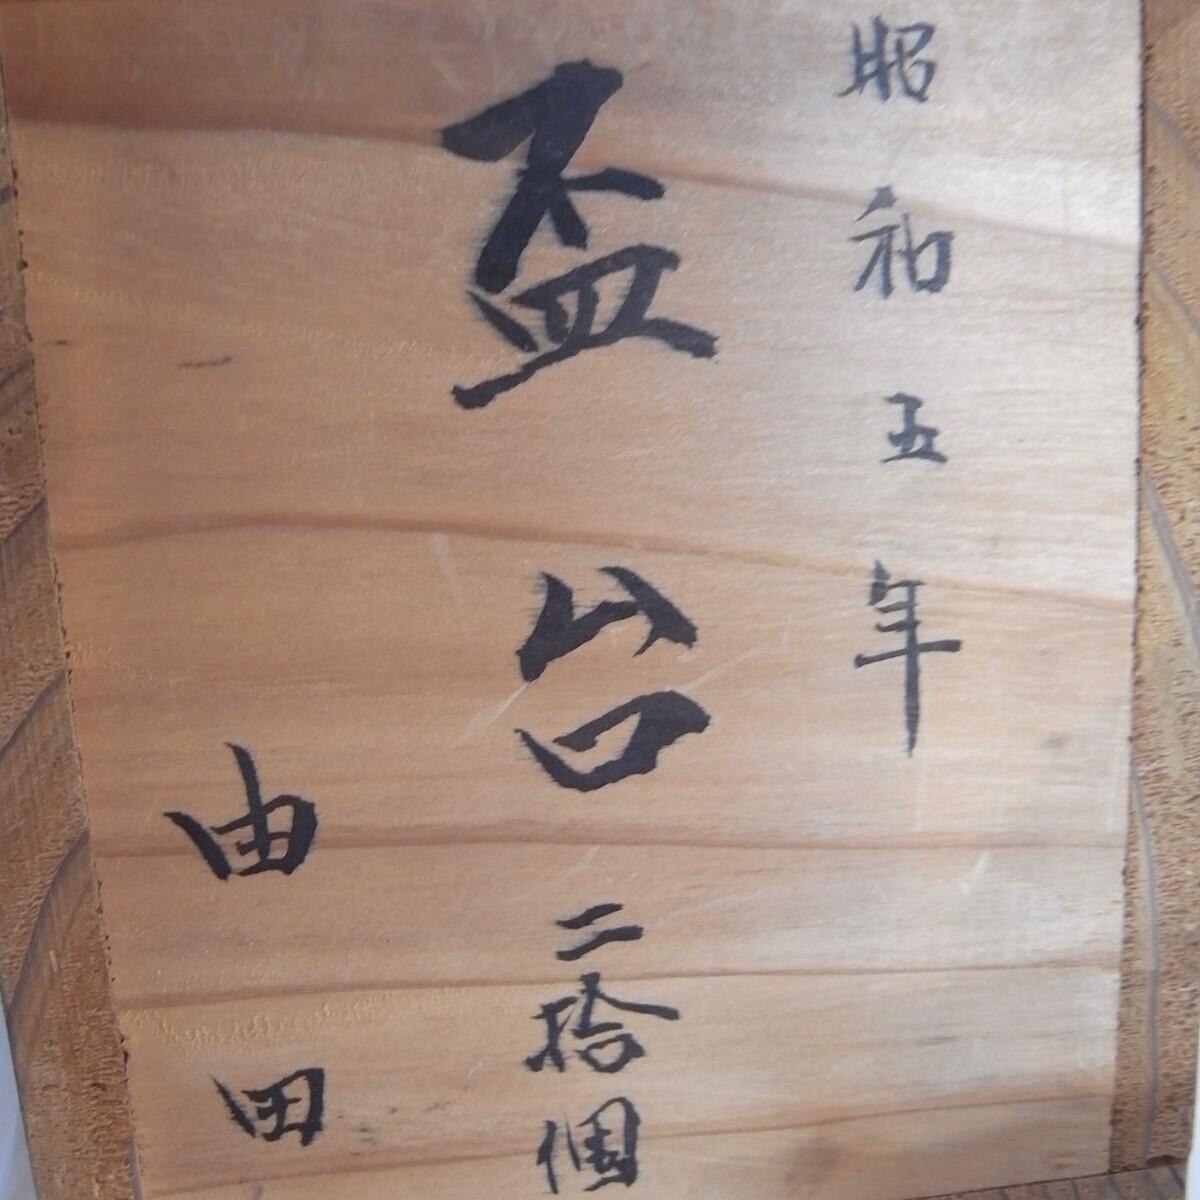 昭和五年
盃台二拾個
由田